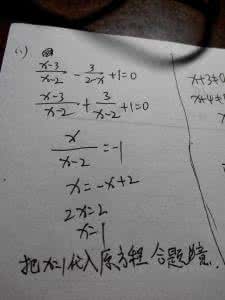 (1)
(x-3)/(x-2) - 3/(2-x) + 1 = 0
(x-3)/(x-2) + 3/(x-2) + 1 = 0
x/(x-2) = -1
x = -x+2
2x = 2
x = 1
把 x=1 代入原方程 合题意.
x+3≠0
x+4≠